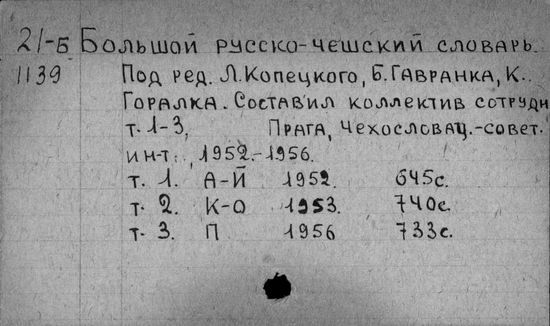 21-Б Большой русско-чешский словарь.
1139 Под ред. Л.Копецкого, Б.Гавранка, К.
Горалка. Составил коллектив сотрудн
т. 1-3, Прага, Чехословац.-совет.
ин-т, 1952.-1956.
т. 1. А-Й 1952. 645с.
т. 2. К-О 1953. 740с.
т. 3. П 1956 733с.